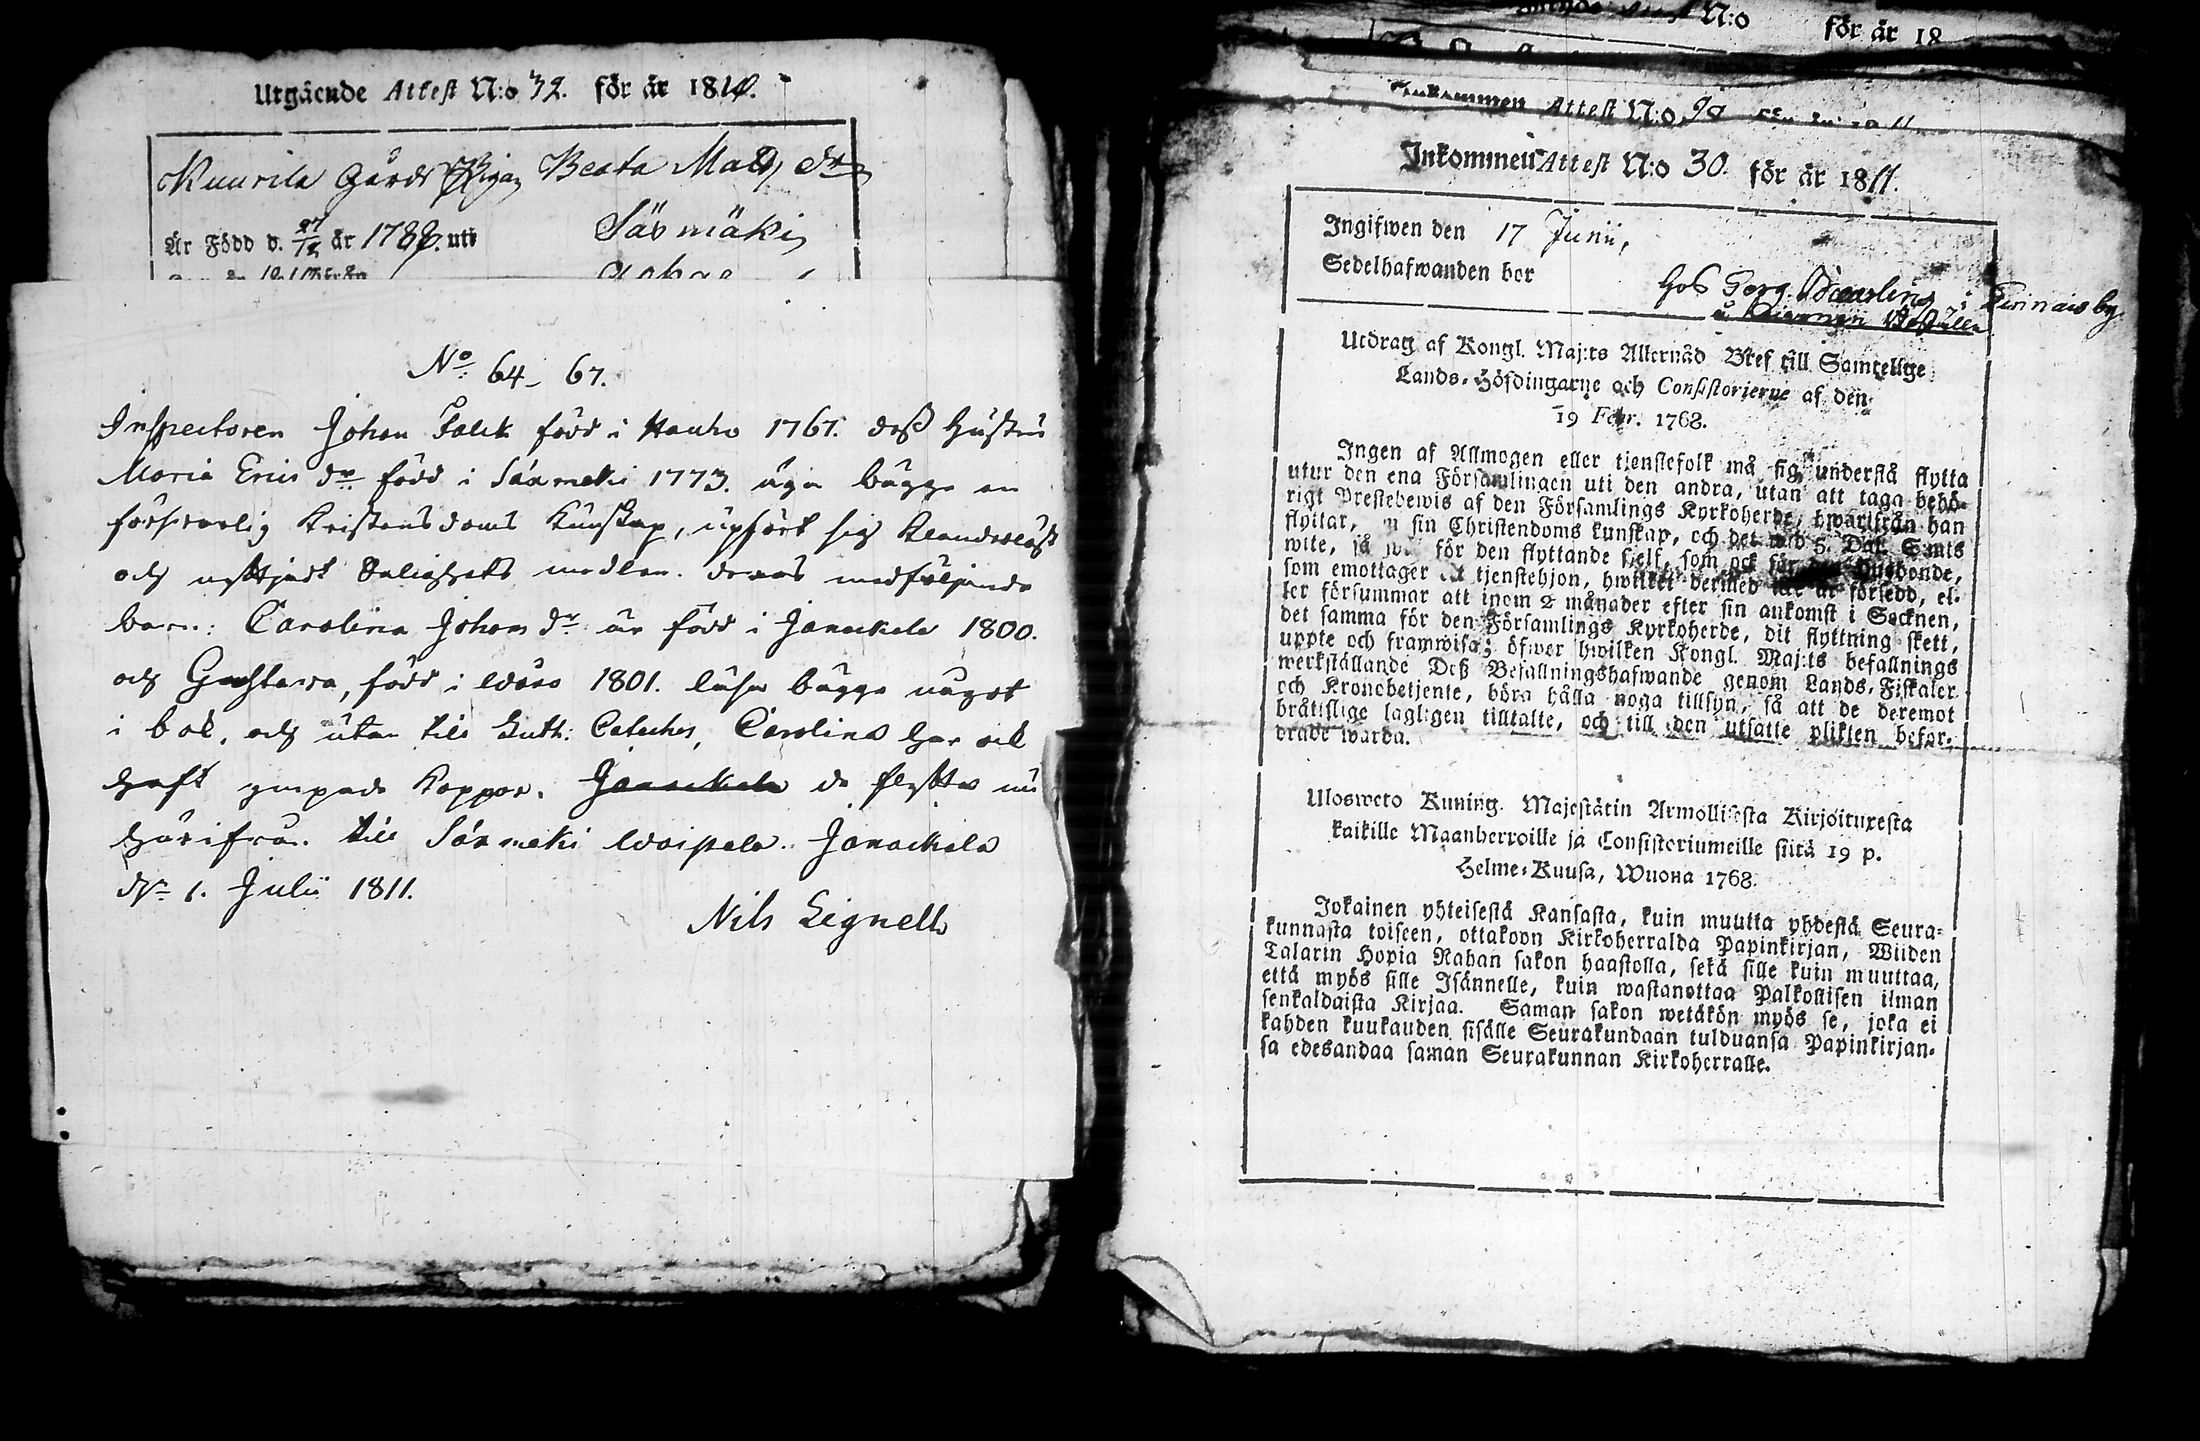 Utgående Attest N:o 32. för år 1810.
Kuurila Gårds Pigan Beata Mats dr
Är Född d. 27/12 år 1788. uti Säxmäki
No 64-67.
Inspectoren Johan Falck född i Hauho 1767. dess hustru
Maria Erics dr född i Säxmeki 1773. äga bägge en
försvarlig Kristendoms Kunskap, upfört sig Klanderlöst
och nyttjadt Salighets medlen. deras medföljande
barn: Carolina Johans dr är född i Janackala 1800.
och Gustava, född i 1801. läsa bägge något
i bok, och utan till Luth: Cateches, Carolina har ock
haft ympade Koppor. Janackala de flyttar nu
härifrån till Säxmeki Woipala. Janackala
d. 1. Julii 1811.
Nils Lignell
för år 18
N:o
Attest N:o
Inkommen Attest N:o 30. för år 1811.
Ingifwen den 17 Junii,
Sedelhafwanden bor
hos Georg i by
Utdrag af Kongl. Maj:ts Allernåd Bref till Samtellige
Lands-Höfdingarne och Consistorierne af den
19 Febr. 1768.
Ingen af Allmogen eller tjenstefolk må sig understå flytta
utur den ena Församlingen uti den andra, utan att taga behö-
rigt Prestebewis af den Församlings Kyrkoherde, hwarifrån han
flyttar, om sin Christendoms kunskap, och det wid 5 Dal. S:mts
wite, så wäl för den flyttande sjelf, som ock för den Husbonde,
som emottager ett tjenstehjon, hwilket dermed icke är försedd, el-
ler försummar att inom 2 månader efter sin ankomst i Socknen,
det samma för den Församlings Kyrkoherde, dit flyttning skett,
uppte och framwisa; öfwer hwilken Kongl. Maj:ts befallnings
werkställande Deß Befallningshafwande genom Lands-Fiskaler
och Kronobetjente, böra hålla noga tillsyn, så att de deremot
bråtslige lagligen tilltalte, och till den utsatte plikten befor-
drade warda.
Ulosweto Kuning. Majestätin Armollisesta Kirjoituxesta
kaikille Maanherroille ja Consistoriumeille siitä 19 p.
Helme-Kuusa, Wuona 1768.
Jokainen yhteisestä Kansasta, kuin muutta yhdestä Seura-
kunnasta toiseen, ottakoon Kirkoherralda Papinkirjan, Wiiden
Talarin Hopia Rahan sakon haastolla, sekä sille kuin muuttaa,
että myös sille Isännelle, kuin wastanottaa Palkollisen ilman
senkaldaista Kirjaa. Saman sakon wetäkön myös se, joka ei
kahden kuukauden sisälle Seurakundaan tulduansa Papinkirjan-
sa edesandaa saman Seurakunnan Kirkoherralle.